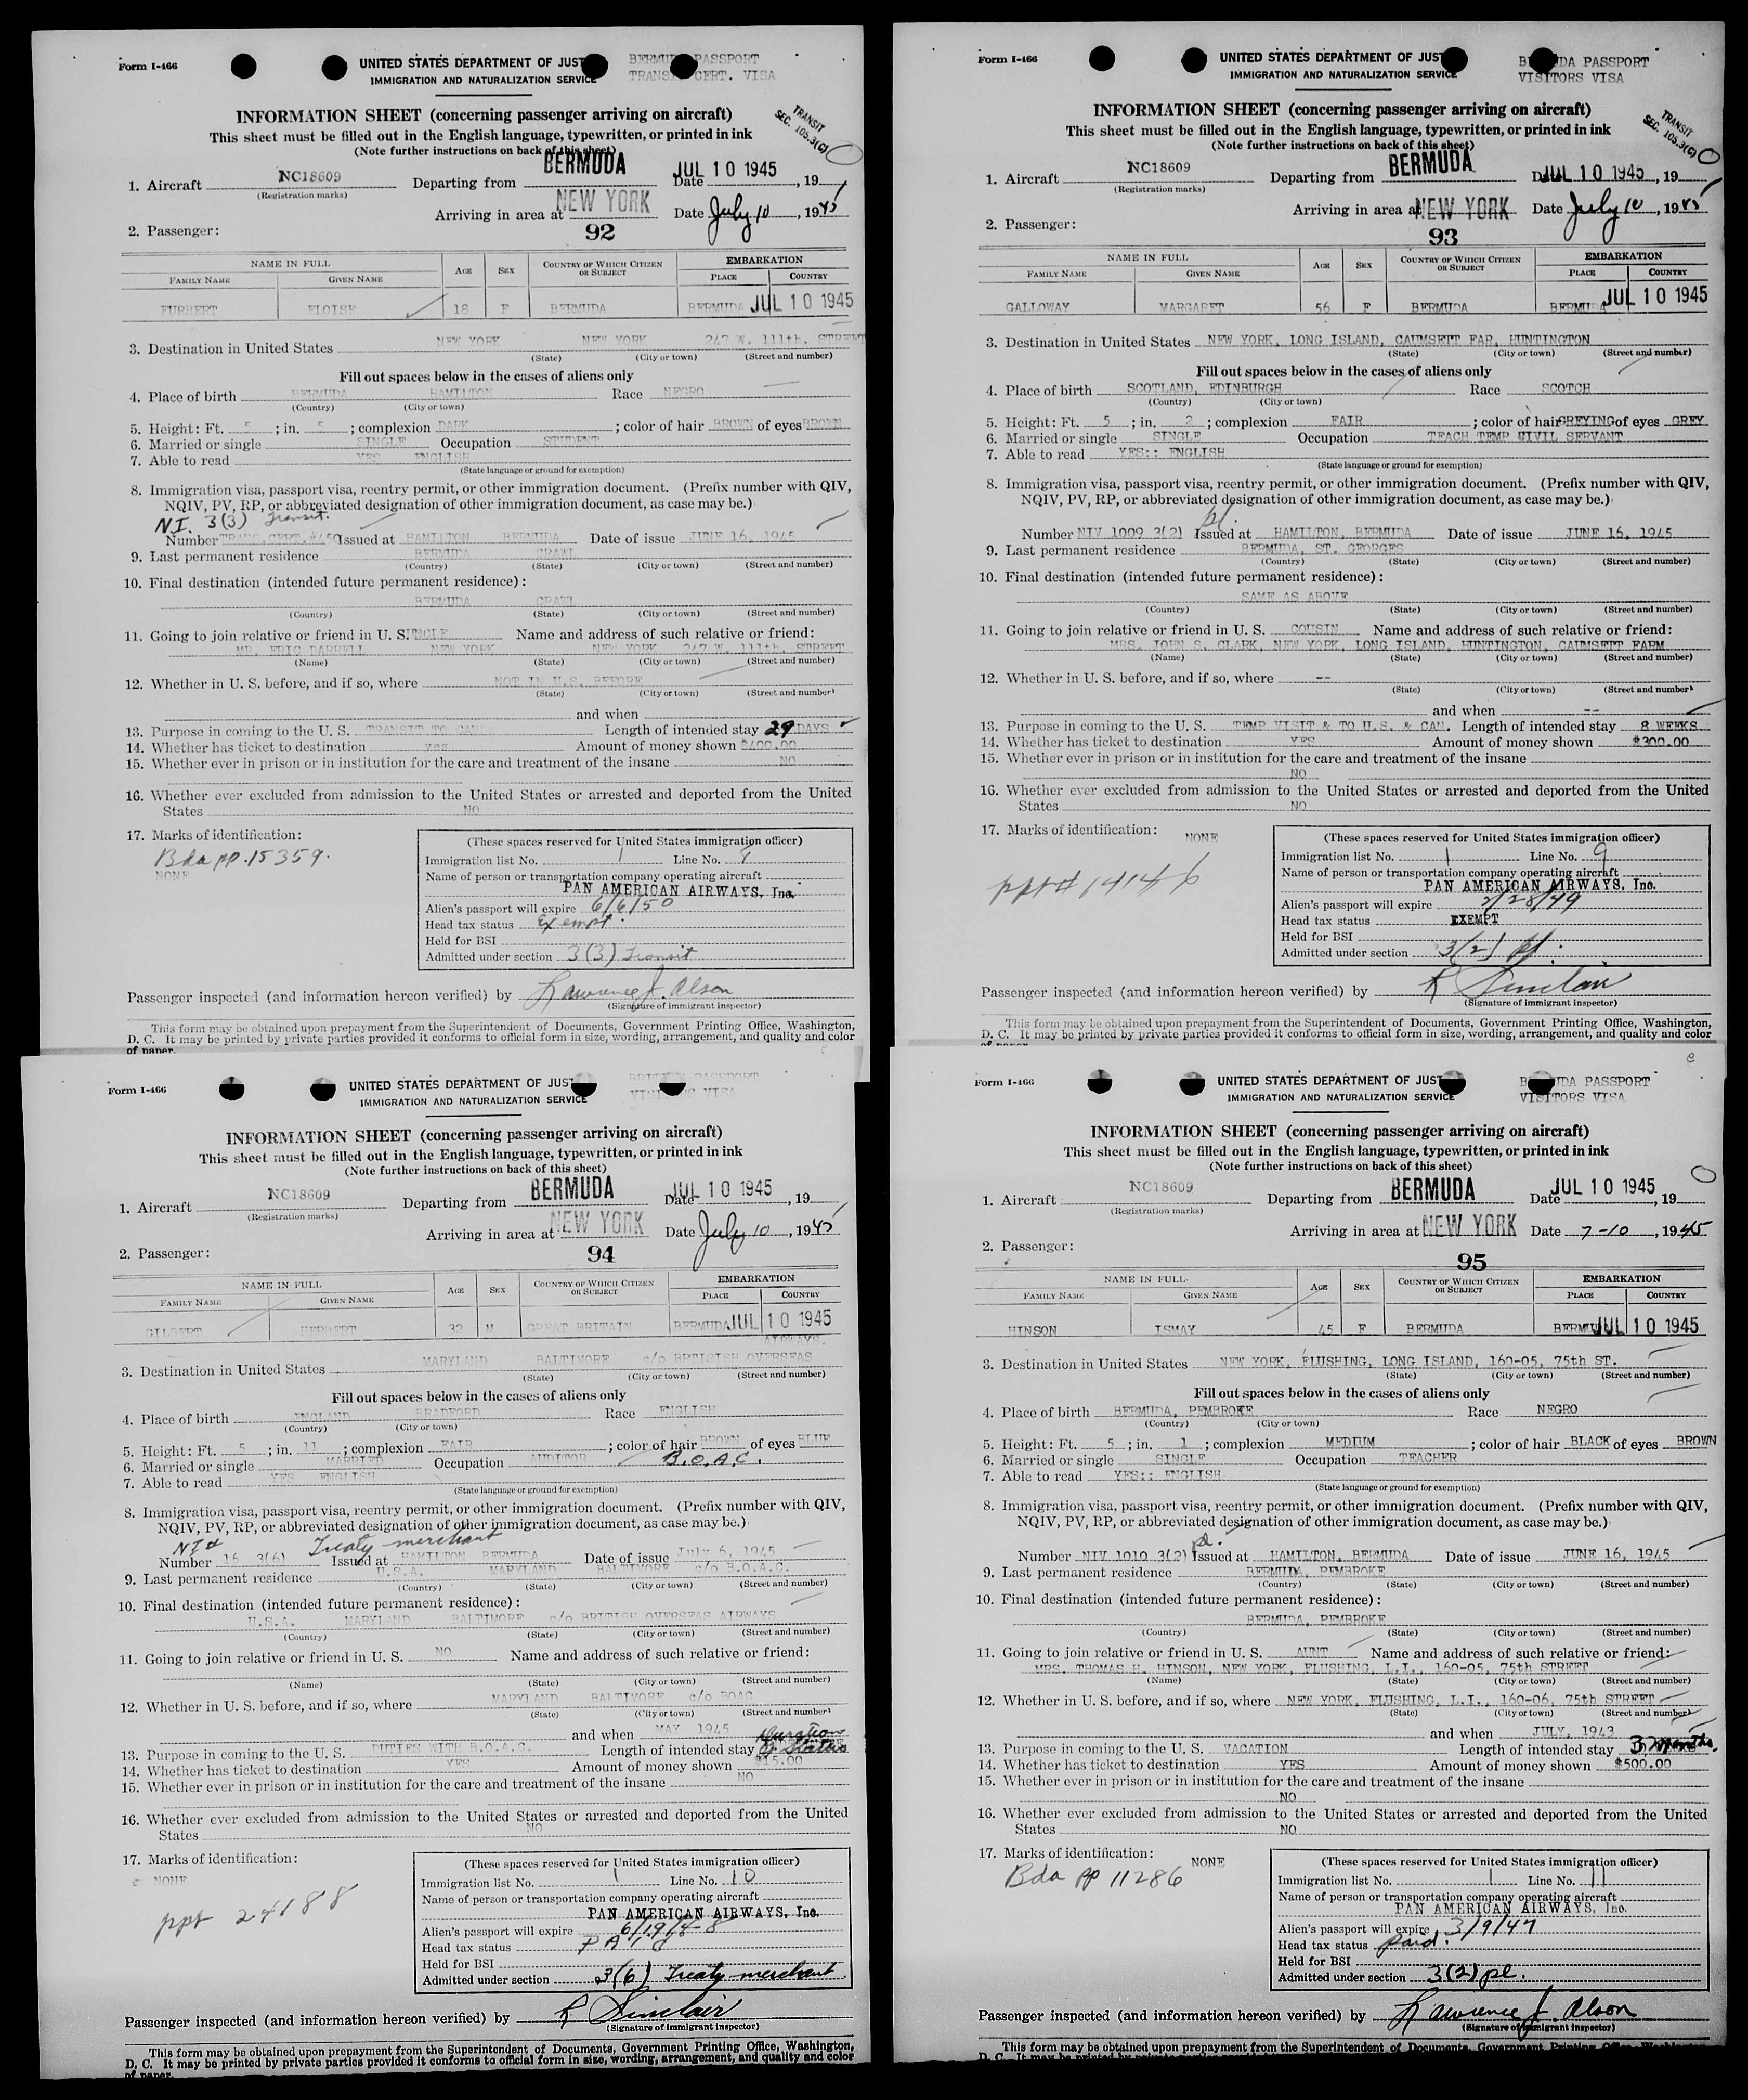 Form I-466
UNITED STATES DEPARTMENT OF JUST
BERMUDA PASSPORT
IMMIGRATION AND NATURALIZATION SERVICE
TRANS. CERT. VISA
INFORMATION SHEET (concerning passenger arriving on aircraft)
TRANSIT SEC. 105.3(C)
This sheet must be filled out in the English language, typewritten, or printed in ink
(Note further instructions on back of this sheet)
1. Aircraft NC18609 Departing from BERMUDA Date JUL 10 1945, 19
(Registration marks)
Arriving in area at NEW YORK Date July 10, 1945
2. Passenger: 92
NAME IN FULL AGE SEX COUNTRY OF WHICH CITIZEN OR SUBJECT EMBARKATION
FAMILY NAME GIVEN NAME PLACE COUNTRY
FURBERT ELOISE 18 F BERMUDA BERMUDA JUL 10 1945
3. Destination in United States NEW YORK NEW YORK 247 W. 111th. STREET
(State) (City or town) (Street and number)
Fill out spaces below in the cases of aliens only
4. Place of birth BERMUDA HAMILTON Race NEGRO
(Country) (City or town)
5. Height: Ft. 5; in. 5; complexion DARK; color of hair BROWN of eyes BROWN
6. Married or single SINGLE Occupation STUDENT
7. Able to read YES ENGLISH
(State language or ground for exemption)
8. Immigration visa, passport visa, reentry permit, or other immigration document. (Prefix number with QIV,
NQIV, PV, RP, or abbreviated designation of other immigration document, as case may be.)
N.I. 3(3) Transit.
Number TRANS.CERT.#450 Issued at HAMILTON BERMUDA Date of issue JUNE 16, 1945
9. Last permanent residence BERMUDA CRAWL
(Country) (State) (City or town) (Street and number)
10. Final destination (intended future permanent residence):
BERMUDA CRAWL
(Country) (State) (City or town) (Street and number)
11. Going to join relative or friend in U. S. UNCLE Name and address of such relative or friend:
MR. ERIC DARRELL NEW YORK NEW YORK 247 W. 111th. STREET
(Name) (State) (City or town) (Street and number)
12. Whether in U. S. before, and if so, where NOT IN U.S. BEFORE
(State) (City or town) (Street and number)
and when
13. Purpose in coming to the U. S. TRANSIT TO CAN. Length of intended stay 29 DAYS
14. Whether has ticket to destination yes Amount of money shown $400.00
15. Whether ever in prison or in institution for the care and treatment of the insane NO
16. Whether ever excluded from admission to the United States or arrested and deported from the United
States NO
17. Marks of identification:
Bda pp. 15359.
NONE
(These spaces reserved for United States immigration officer)
Immigration list No. 1 Line No. 9
Name of person or transportation company operating aircraft
PAN AMERICAN AIRWAYS, Inc.
Alien's passport will expire 6/6/50
Head tax status Exempt.
Held for BSI
Admitted under section 3(3) Transit
Passenger inspected (and information hereon verified) by Lawrence J. Alson
(Signature of immigrant inspector)
This form may be obtained upon prepayment from the Superintendent of Documents, Government Printing Office, Washington,
D. C. It may be printed by private parties provided it conforms to official form in size, wording, arrangement, and quality and color
of paper.
Form I-466
UNITED STATES DEPARTMENT OF JUST
B DA PASSPORT
IMMIGRATION AND NATURALIZATION SERVICE
VISITORS VISA
INFORMATION SHEET (concerning passenger arriving on aircraft)
TRANSIT SEC. 105.3(C)
This sheet must be filled out in the English language, typewritten, or printed in ink
(Note further instructions on back of this sheet)
1. Aircraft NC18609 Departing from BERMUDA D JUL 10 1945, 19
(Registration marks)
Arriving in area at NEW YORK Date July 10, 1945
2. Passenger: 93
NAME IN FULL AGE SEX COUNTRY OF WHICH CITIZEN OR SUBJECT EMBARKATION
FAMILY NAME GIVEN NAME PLACE COUNTRY
GALLOWAY MARGARET 56 F BERMUDA BERMUDA JUL 10 1945
3. Destination in United States NEW YORK, LONG ISLAND, CAUMSETT FAR, HUNTINGTON
(State) (City or town) (Street and number)
Fill out spaces below in the cases of aliens only
4. Place of birth SCOTLAND, EDINBURGH Race SCOTCH
(Country) (City or town)
5. Height: Ft. 5; in. 2; complexion FAIR; color of hair GREYING of eyes GREY
6. Married or single SINGLE Occupation TEACH TEMP WIVIL SERVANT
7. Able to read YES:: ENGLISH
(State language or ground for exemption)
8. Immigration visa, passport visa, reentry permit, or other immigration document. (Prefix number with QIV,
NQIV, PV, RP, or abbreviated designation of other immigration document, as case may be.)
pl.
Number NIV 1009 3(2) Issued at HAMILTON, BERMUDA Date of issue JUNE 16, 1945
9. Last permanent residence BERMUDA, ST. GEORGES
(Country) (State) (City or town) (Street and number)
10. Final destination (intended future permanent residence):
SAME AS ABOVE
(Country) (State) (City or town) (Street and number)
11. Going to join relative or friend in U. S. COUSIN Name and address of such relative or friend:
MRS. JOHN S. CLARK, NEW YORK, LONG ISLAND, HUNTINGTON, CAUMSETT FARM
(Name) (State) (City or town) (Street and number)
12. Whether in U. S. before, and if so, where --
(State) (City or town) (Street and number)
and when --
13. Purpose in coming to the U. S. TEMP VISIT & TO U.S. & CAN. Length of intended stay 8 WEEKS
14. Whether has ticket to destination YES Amount of money shown $300.00
15. Whether ever in prison or in institution for the care and treatment of the insane
NO
16. Whether ever excluded from admission to the United States or arrested and deported from the United
States NO
17. Marks of identification: NONE
ppt# 14146
(These spaces reserved for United States immigration officer)
Immigration list No. 1 Line No. 9
Name of person or transportation company operating aircraft
PAN AMERICAN AIRWAYS, Inc.
Alien's passport will expire 2/28/49
Head tax status EXEMPT
Held for BSI
Admitted under section 3(2) pl.
Passenger inspected (and information hereon verified) by R Sinclair
(Signature of immigrant inspector)
This form may be obtained upon prepayment from the Superintendent of Documents, Government Printing Office, Washington,
D. C. It may be printed by private parties provided it conforms to official form in size, wording, arrangement, and quality and color
of paper.
Form I-466
UNITED STATES DEPARTMENT OF JUST
BRITI PASSPORT
IMMIGRATION AND NATURALIZATION SERVICE
VISITORS VISA
INFORMATION SHEET (concerning passenger arriving on aircraft)
This sheet must be filled out in the English language, typewritten, or printed in ink
(Note further instructions on back of this sheet)
1. Aircraft NC18609 Departing from BERMUDA Date JUL 10 1945, 19
(Registration marks)
Arriving in area at NEW YORK Date July 10, 1945
2. Passenger: 94
NAME IN FULL AGE SEX COUNTRY OF WHICH CITIZEN OR SUBJECT EMBARKATION
FAMILY NAME GIVEN NAME PLACE COUNTRY
GILBERT HERBERT 32 M GREAT BRITAIN BERMUDA JUL 10 1945
AIRWAYS.
3. Destination in United States MARYLAND BALTIMORE c/o BRTISISH OVERSEAS
(State) (City or town) (Street and number)
Fill out spaces below in the cases of aliens only
4. Place of birth ENGLAND BRADFORD Race ENGLISH
(Country) (City or town)
5. Height: Ft. 5; in. 11; complexion FAIR; color of hair BROWN of eyes BLUE
6. Married or single MARRIED Occupation AUDITOR B.O.A.C.
7. Able to read YES ENGLISH
(State language or ground for exemption)
8. Immigration visa, passport visa, reentry permit, or other immigration document. (Prefix number with QIV,
NQIV, PV, RP, or abbreviated designation of other immigration document, as case may be.)
NI# Treaty merchant
Number 16 3(6) Issued at HAMILTON BERMUDA Date of issue July 6, 1945
9. Last permanent residence U.S.A. MARYLAND BALTIMORE c/o B.O.A.C.
(Country) (State) (City or town) (Street and number)
10. Final destination (intended future permanent residence):
U.S.A. MARYLAND BALTIMORE c/o BRITISH OVERSEAS AIRWAYS
(Country) (State) (City or town) (Street and number)
11. Going to join relative or friend in U. S. NO Name and address of such relative or friend:
(Name) (State) (City or town) (Street and number)
12. Whether in U. S. before, and if so, where MARYLAND BALTIMORE c/o BOAC
(State) (City or town) (Street and number)
and when MAY 1945
13. Purpose in coming to the U. S. DUTIES WITH B.O.A.C. Length of intended stay duration of status
14. Whether has ticket to destination YES Amount of money shown $15.00
15. Whether ever in prison or in institution for the care and treatment of the insane NO
16. Whether ever excluded from admission to the United States or arrested and deported from the United
States NO
17. Marks of identification:
NONE
ppt 24188
(These spaces reserved for United States immigration officer)
Immigration list No. 1 Line No. 10
Name of person or transportation company operating aircraft
PAN AMERICAN AIRWAYS, Inc.
Alien's passport will expire 6/19/48
Head tax status PAID
Held for BSI
Admitted under section 3(6) Treaty merchant.
Passenger inspected (and information hereon verified) by R Sinclair
(Signature of immigrant inspector)
This form may be obtained upon prepayment from the Superintendent of Documents, Government Printing Office, Washington,
D. C. It may be printed by private parties provided it conforms to official form in size, wording, arrangement, and quality and color
of paper.
Form I-466
UNITED STATES DEPARTMENT OF JUST
B UDA PASSPORT
IMMIGRATION AND NATURALIZATION SERVICE
VISITORS VISA
INFORMATION SHEET (concerning passenger arriving on aircraft)
This sheet must be filled out in the English language, typewritten, or printed in ink
(Note further instructions on back of this sheet)
1. Aircraft NC18609 Departing from BERMUDA Date JUL 10 1945, 19
(Registration marks)
Arriving in area at NEW YORK Date 7-10, 1945
2. Passenger: 95
NAME IN FULL AGE SEX COUNTRY OF WHICH CITIZEN OR SUBJECT EMBARKATION
FAMILY NAME GIVEN NAME PLACE COUNTRY
HINSON ISMAY 45 F BERMUDA BERMU JUL 10 1945
3. Destination in United States NEW YORK, FLUSHING, LONG ISLAND, 160-05, 75th ST.
(State) (City or town) (Street and number)
Fill out spaces below in the cases of aliens only
4. Place of birth BERMUDA, PEMBROKE Race NEGRO
(Country) (City or town)
5. Height: Ft. 5; in. 1; complexion MEDIUM; color of hair BLACK of eyes BROWN
6. Married or single SINGLE Occupation TEACHER
7. Able to read YES:: ENGLISH
(State language or ground for exemption)
8. Immigration visa, passport visa, reentry permit, or other immigration document. (Prefix number with QIV,
NQIV, PV, RP, or abbreviated designation of other immigration document, as case may be.)
pl.
Number NIV 1010 3(2) Issued at HAMILTON, BERMUDA Date of issue JUNE 16, 1945
9. Last permanent residence BERMUDA, PEMBROKE
(Country) (State) (City or town) (Street and number)
10. Final destination (intended future permanent residence):
BERMUDA, PEMBROKE
(Country) (State) (City or town) (Street and number)
11. Going to join relative or friend in U. S. AUNT Name and address of such relative or friend:
MRS. THOMAS H. HINSON, NEW YORK, FLUSHING, L.I., 160-05, 75th STREET
(Name) (State) (City or town) (Street and number)
12. Whether in U. S. before, and if so, where NEW YORK, FLUSHING, L.I., 160-06, 75th STREET
(State) (City or town) (Street and number)
and when JULY, 1943
13. Purpose in coming to the U. S. VACATION Length of intended stay 3 months.
14. Whether has ticket to destination YES Amount of money shown $500.00
15. Whether ever in prison or in institution for the care and treatment of the insane
NO
16. Whether ever excluded from admission to the United States or arrested and deported from the United
States NO
17. Marks of identification: NONE
Bda pp 11286
(These spaces reserved for United States immigration officer)
Immigration list No. 1 Line No. 11
Name of person or transportation company operating aircraft
PAN AMERICAN AIRWAYS, Inc.
Alien's passport will expire 3/9/47
Head tax status paid.
Held for BSI
Admitted under section 3(2) pl.
Passenger inspected (and information hereon verified) by Lawrence J. Alson
(Signature of immigrant inspector)
This form may be obtained upon prepayment from the Superintendent of Documents, Government Printing Office, Washington,
D. C. It may be printed by private parties provided it conforms to official form in size, wording, arrangement, and quality and color